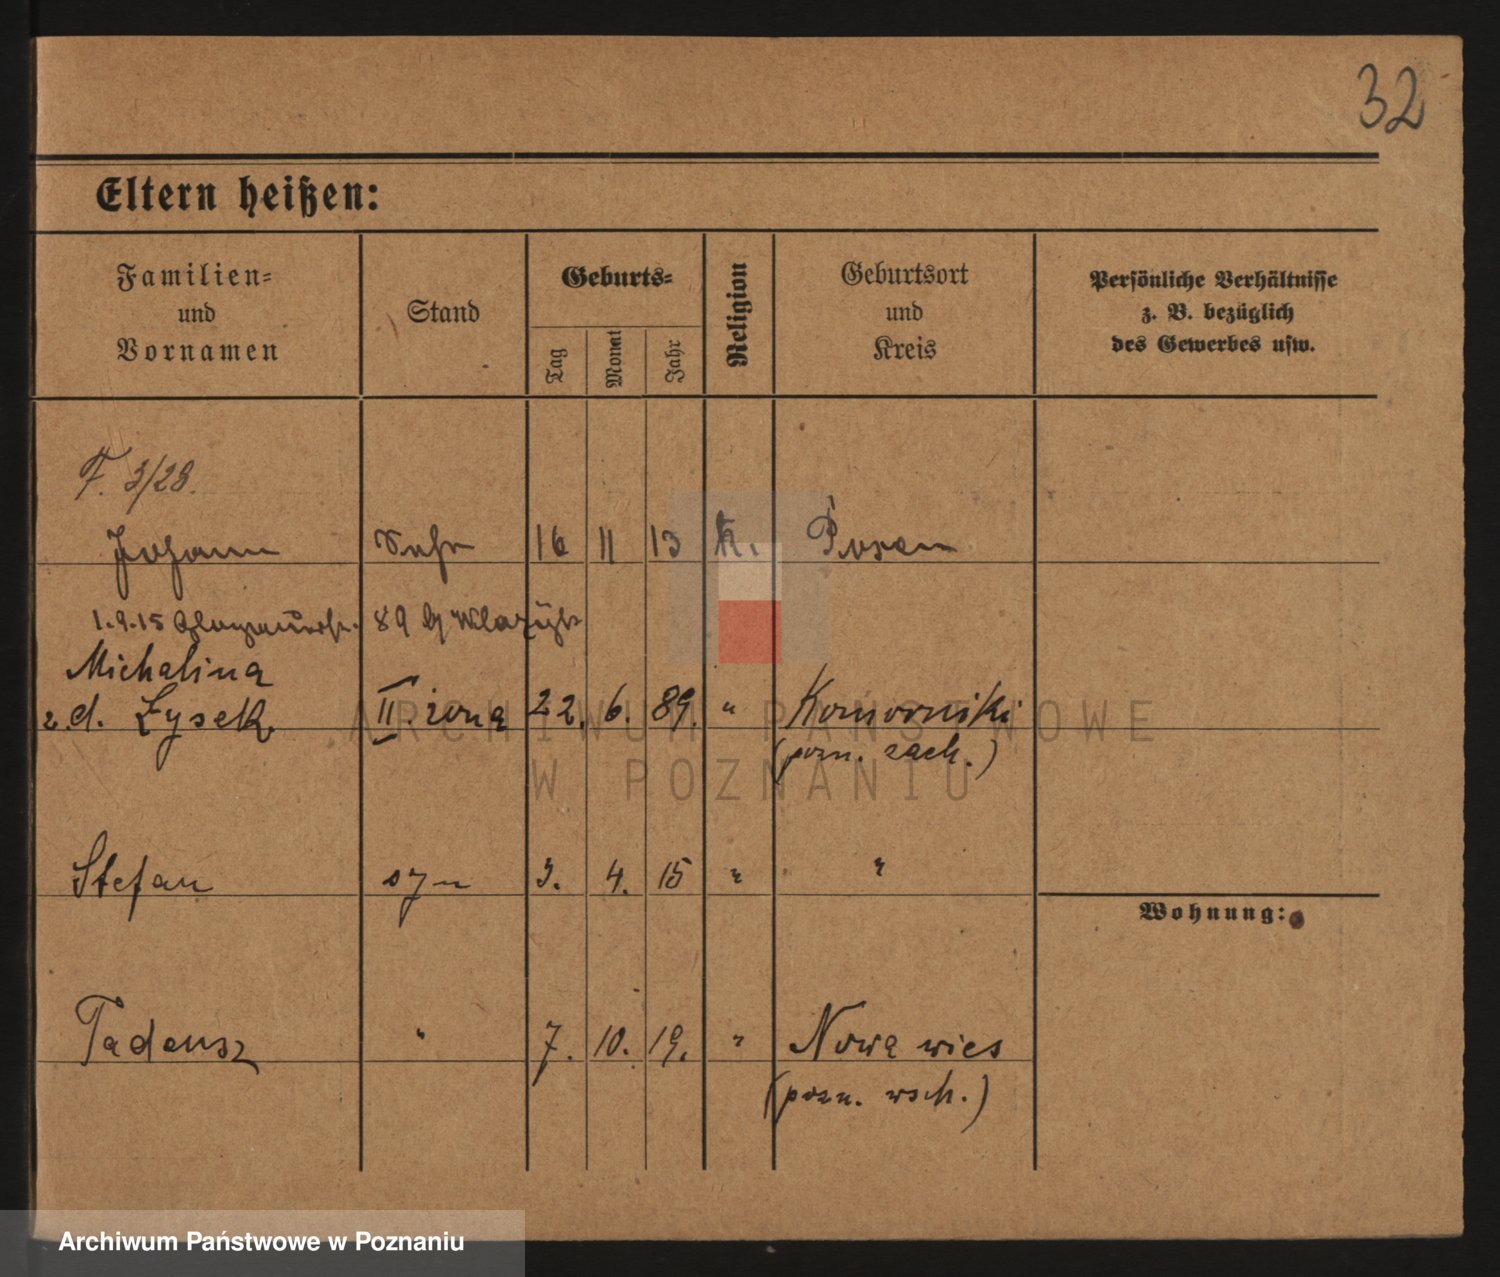 32
Eltern heißen:
Familien-
und
Vornamen
Stand
Geburts-
Tag
Monat
Jahr
Religion
Geburtsort
und
Kreis
Persönliche Verhältnisse
z. B. bezüglich
des Gewerbes usw.
F. 3/28.
Johann Sohn 16 11 13 K. Posen
1.9.15 89
Michalina
z d. Łysek II. żona 22. 6. 89. " Komorniki
(pozn. zach.)
Stefan syn 3. 4. 15 " "
Wohnung:
Tadeusz " 7. 10. 19. " Nowa wies
(pozn. wsch.)
ARCHIWUM PAŃSTWOWE
W POZNANIU
Archiwum Państwowe w Poznaniu